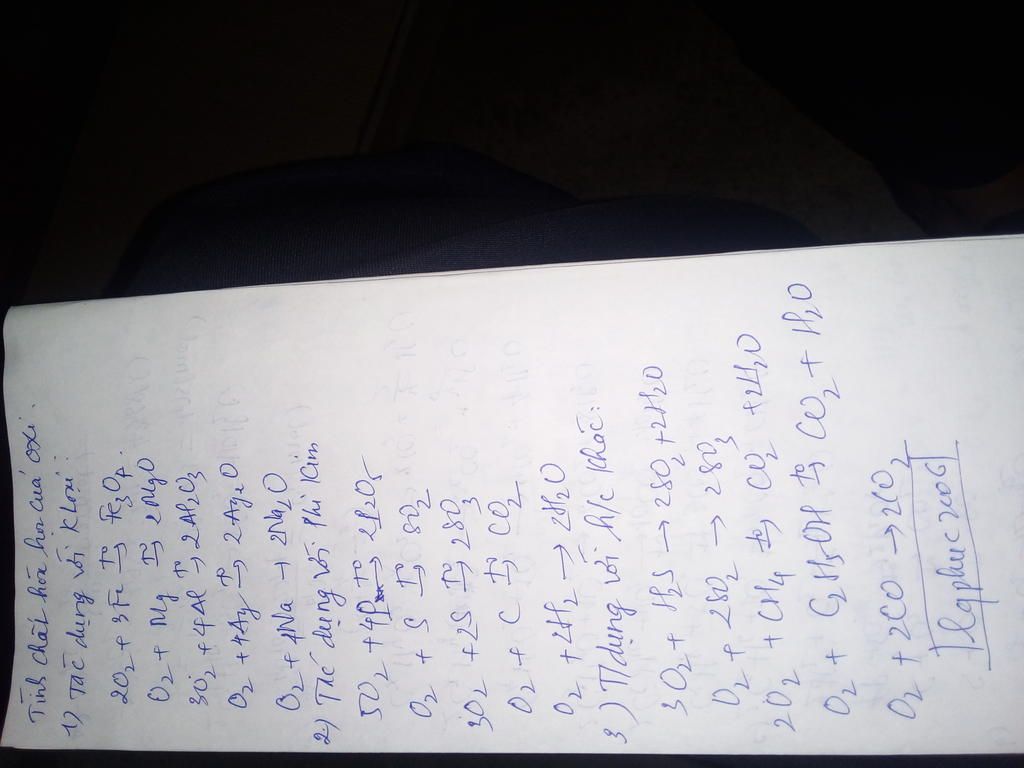 Tính chất hóa học của oxi.
1) Tác dụng với Kloại:
2O₂ + 3Fe t°→ Fe₃O₄.
O₂ + Mg t°→ 2MgO
3O₂ + 4Al t°→ 2Al₂O₃
O₂ + 4Ag t°→ 2Ag₂O
O₂ + 4Na → 2Na₂O
2) Tác dụng với Phi Kim
5O₂ + 4P t°→ 2P₂O₅
O₂ + S t°→ SO₂
3O₂ + 2S t°→ 2SO₃
O₂ + C t°→ CO₂
O₂ + 2H₂ → 2H₂O
3) T/dụng với h/c khác:
3O₂ + H₂S → 2SO₂ + 2H₂O
O₂ + 2SO₂ → 2SO₃
2O₂ + CH₄ t°→ CO₂ + 2H₂O
O₂ + C₂H₅OH t°→ CO₂ + H₂O
O₂ + 2CO → 2CO₂
lqphuc2006